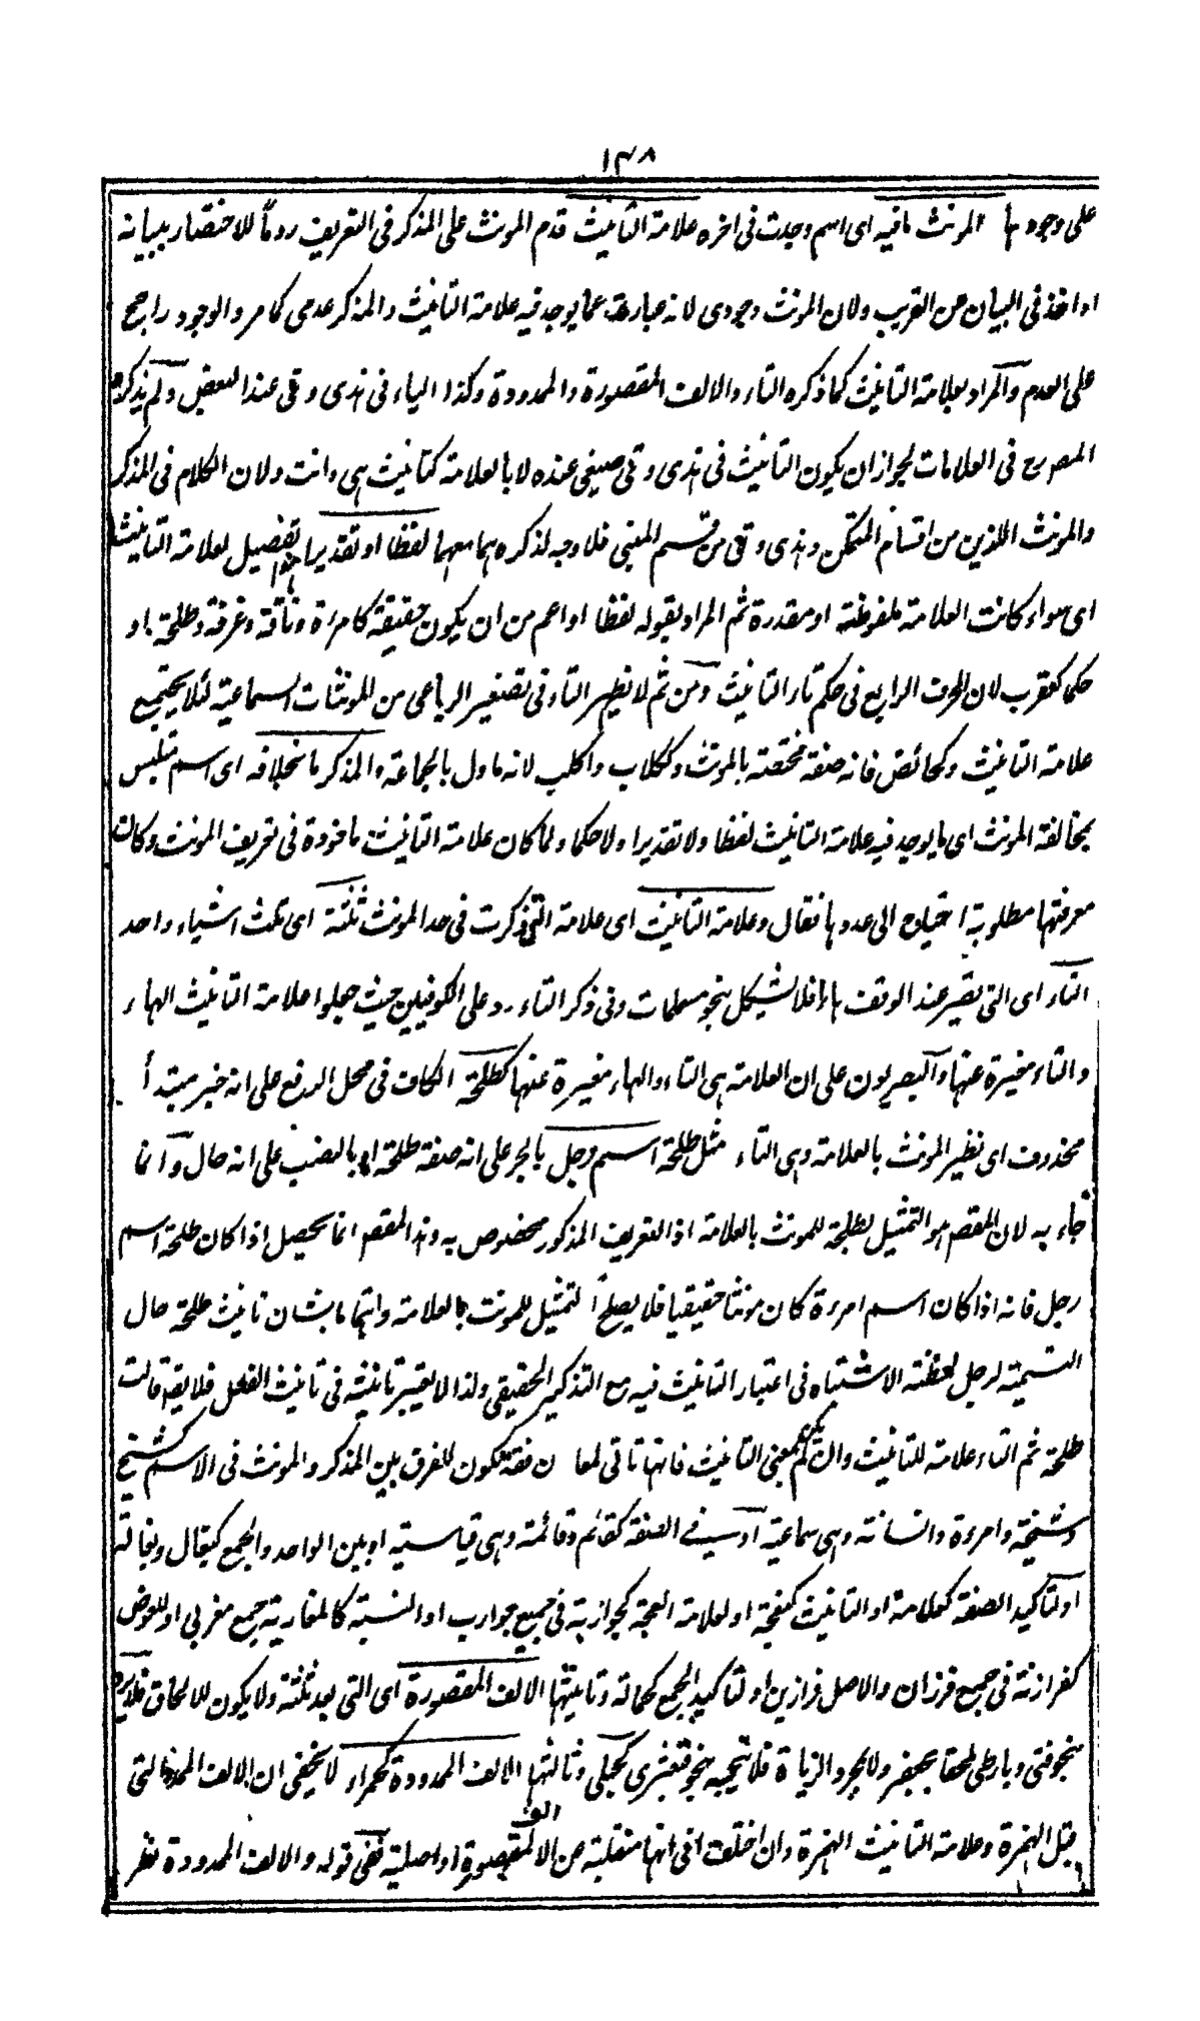 ١٣٨
على وجودها المونث مافيه اى اسم وجدت فى اخره علامة التانيث قدم المونث على المذكر فى التعريف روماً للاختصار ببيانه
اواخذ فى البيان من القريب ولان المونث وجودى لانه عبارة عما يوجد فيه علامة التانيث والمذكر عدمى كما مر والوجود راجح
على العدم والمراد بعلامة التانيث كما ذكره التاء والالف المقصورة والممدودة وكذا الياء فى هذى وقى عند البعض ولم يذكره
المصرح فى العلامات لجواز ان يكون التانيث فى هذى وقى صيغى عنده لا بالعلامة كتانيث هى وانت ولان الكلام فى المذكر
والمونث اللذين من اقسام المتمكن وهذى وقى من قسم المبنى فلا وجه لذكرهما معهما لفظا او تقديرا تفصيل لعلامة التانيث
اى سواء كانت العلامة ملفوظة او مقدرة ثم المراد بقوله لفظا اواعم من ان يكون حقيقة كامرءة وناقة وغرفة وطلحة او
حكما كعقرب لان الحرف الرابع فى حكم تاء التانيث ومن ثم لا يظهر التاء فى تصغير الرباعى من المونثات السماعية لئلا يجتمع
علامة التانيث وكحائض فانه صفة مختصة بالمونث وككلاب واكلب لانه ماول بالجماعة والمذكر ما بخلافه اى اسم تلبس
بمخالفة المونث اى ما يوجد فيه علامة التانيث لفظا ولا تقديرا ولا حكما ولما كان علامة التانيث ماخوذة فى تعريف المونث وكان
معرفتها مطلوبة احتياج الى عددها فقال وعلامة التانيث اى علامة التى ذكرت فى حد المونث ثلثة اى ثلث اشياء واحد
التاء اى التى تصير عند الوقف هاء فلا يشكل بنحو مسلمات وفى ذكر التاء رد على الكوفيين حيث جعلوا علامة التانيث الهاء
والتاء مغيرة عنها والبصريون على ان العلامة هى التاء والهاء مغيرة عنها كطلحة الكاف فى محل الرفع على انه خبر مبتدأ
محذوف اى نظير المونث بالعلامة وهى التاء مثل طلحة اسم رجل بالجر على انه صفة طلحة او بالنصب على انه حال وانما
جاء به لان المقصم هو التمثيل بطلحة للمونث بالعلامة اذ التعريف المذكور مخصوص به وهذا المقصم انما يحصل اذا كان طلحة اسم
رجل فانه اذا كان اسم امرءة كان مونثا حقيقيا فلا يصلح التمثيل للمونث بالعلامة وانتهاما بشان تانيث طلحة حال
التسمية لرجل لمظنة الاشتباه فى اعتبار التانيث فيه مع التذكير الحقيقى ولذا لا يعتبر تانيثه فى تانيث الفعل فلا يقال قالت
طلحة ثم التاء علامة للتانيث وان لم يكن بمعنى التانيث فانها تاتى لمعان فقد تكون للفرق بين المذكر والمونث فى الاسم كشيخ
وشيخة وامرءة وانسانة وهى سماعية او فى الصفة كقائم وقائمة وهى قياسية او بين الواحد والجمع كبغال وبغالة
او لتاكيد الصفة كعلامة او التانيث كنعجة او لعلامة العجمة كجواربة فى جميع جوارب او النسبة كالمغاربة جمع مغربى او للعوض
كفرازنة فى جمع فرزان والاصل فرازين او لتاكيد الجمع كحمالة وثانيتها الالف المقصورة اى التى بعد ثلثة ولا يكون للالحاق فلا يرد
بنحو فتى وبارطى ملحقا بجعفر ولا لمجرد الزيادة فلا يتجه بنحو قبعثرى كحبلى وثالثها الالف الممدودة كحمراء لا يخفى ان الالف الممدودة التى
قبل الهمزة وعلامة التانيث الهمزة وان اختلف فى انها منقلبة عن الالف المقصورة او اصلية ففى قوله والالف الممدودة نظر